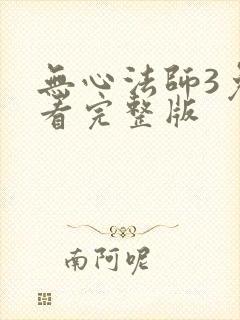 無心法師3
看完整版
南阿呢